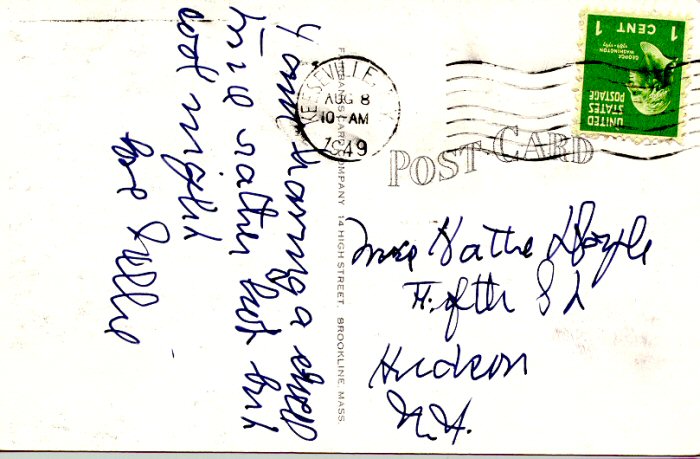 I am having a swell
time rather hot but
cool nights
love Nellie
CARD COMPANY 14 HIGH STREET, BROOKLINE, MASS
KEESEVILLE
AUG 8
10-AM
1949
UNITED
STATES
POSTAGE
GEORGE
WASHINGTON
1789-1797
1 CENT 1
POST CARD
Miss Hattie Doyle
Fifth St
Hudson
N.Y.